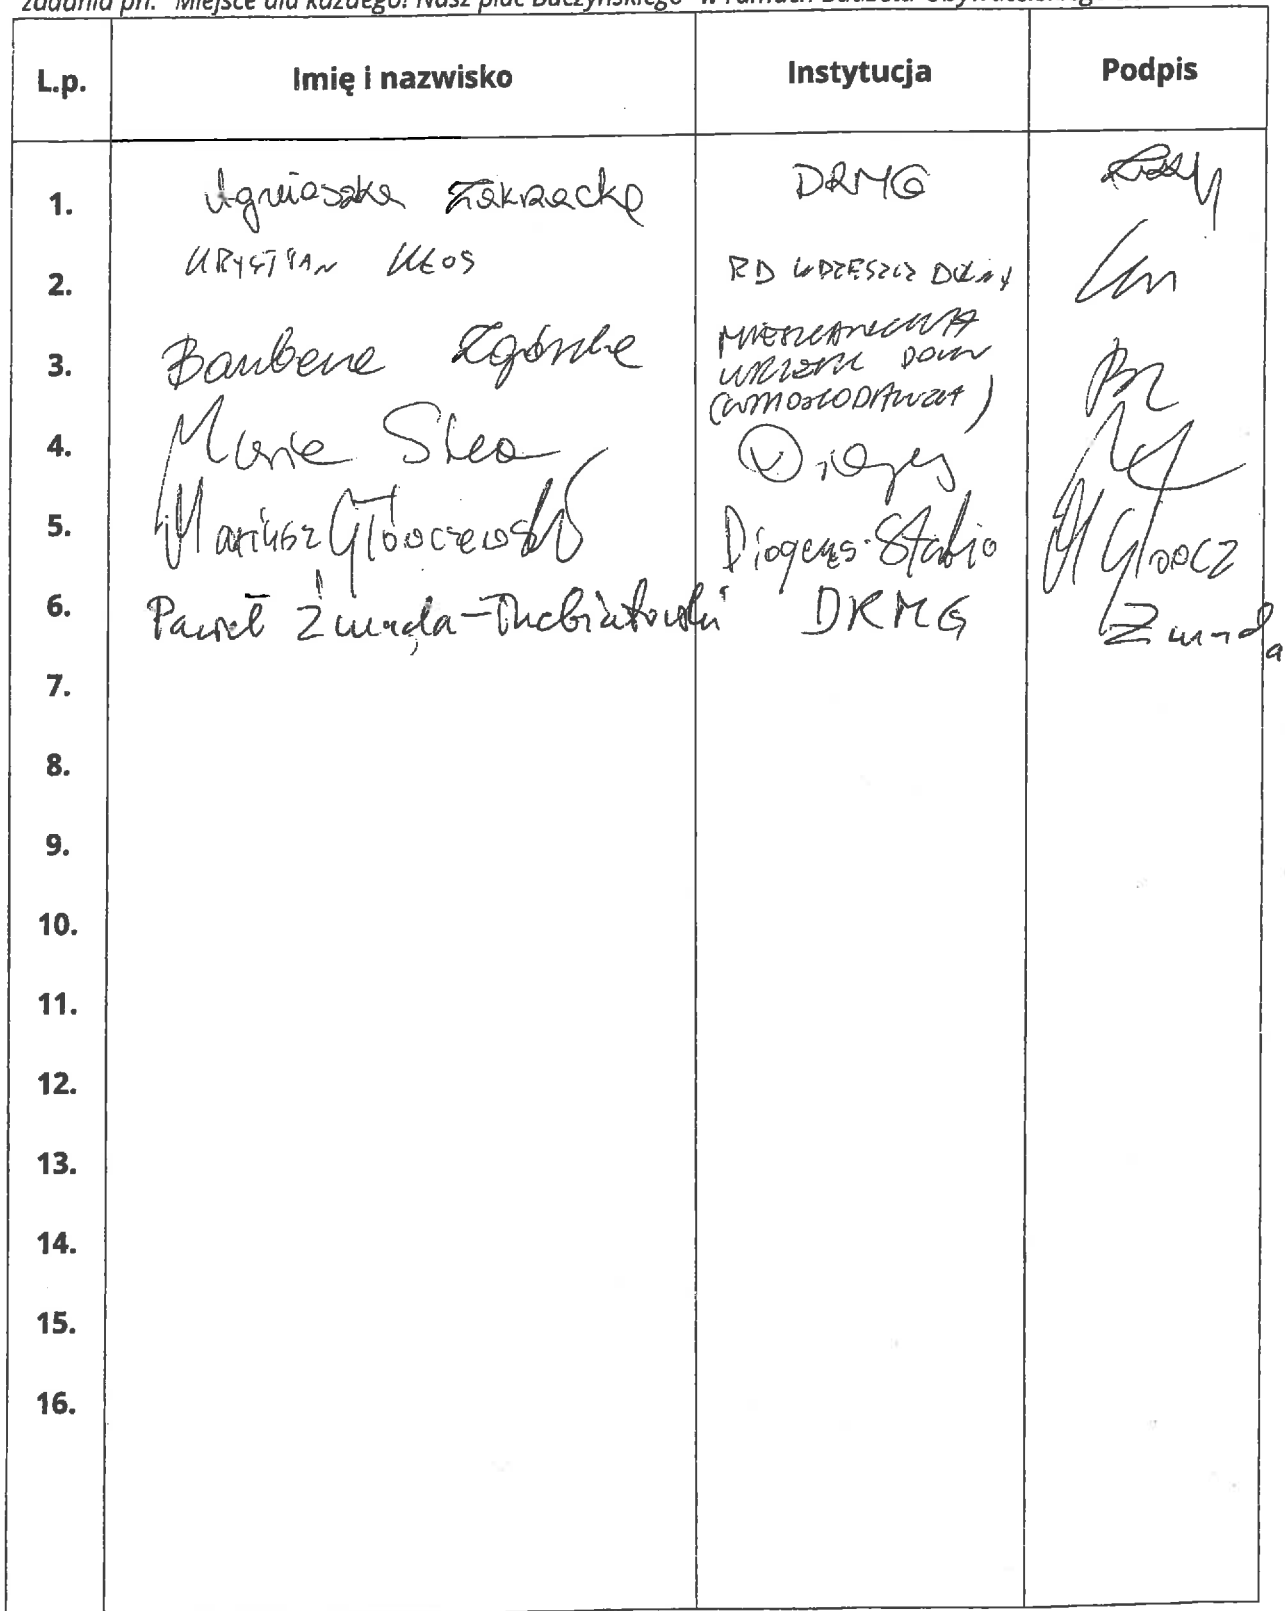 zadania pn. "Miejsce dla każdego! Nasz plac Baczyńskiego" w ramach Budżetu
L.p. Imię i nazwisko Instytucja Podpis
1. Agnieszka Zakrzacka DRMG
2. KRYSTIAN KŁOS RD WRZESZCZ DOLNY
3. Barbara Zgórska MIESZKANKA
WRZESZCZ DOLNY
(WNIOSKODAWCA)
4. Maria
5. Mariusz Diogenes Studio
6. Paweł Żmuda-Trzebiatowski DRMG Żmuda
7.
8.
9.
10.
11.
12.
13.
14.
15.
16.